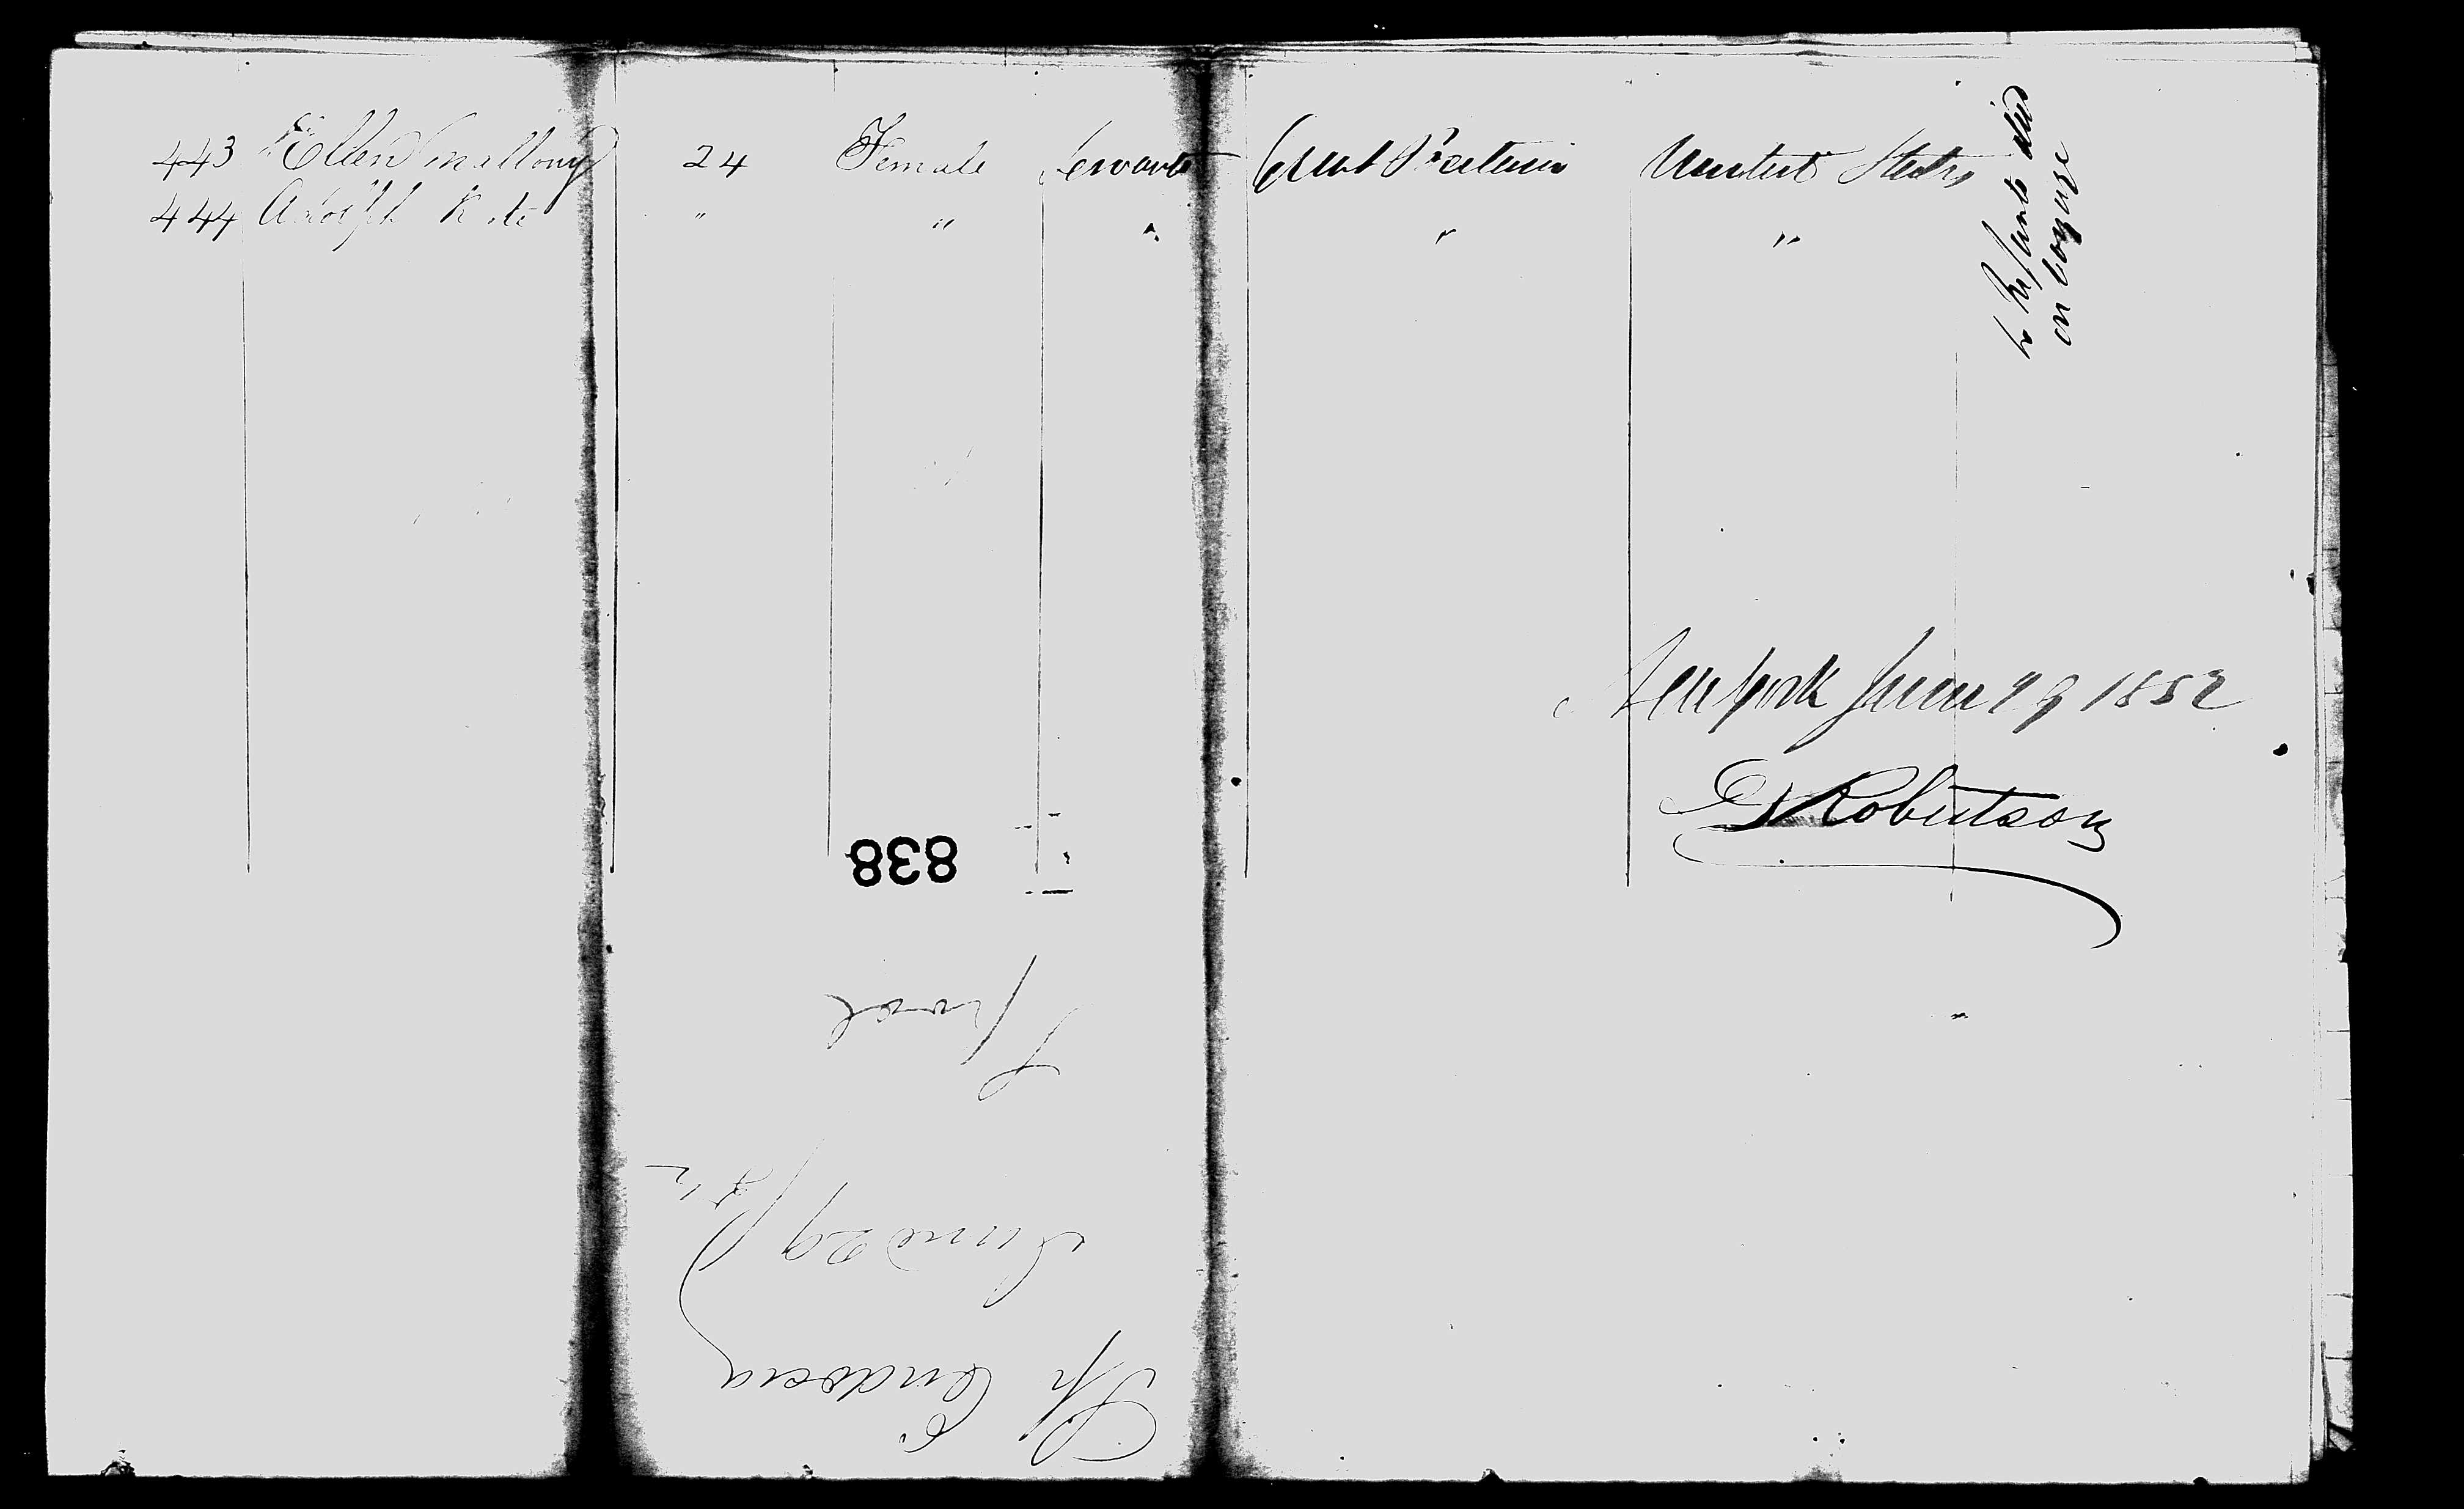 443 Ellen Mallony 24 Female Servant Great Britain United States
444 Adolph " " " " "
Infants died
on voyage
New York June 29 1852
D Robertson
838
Sh Ambosia
June 29/52
Lpool